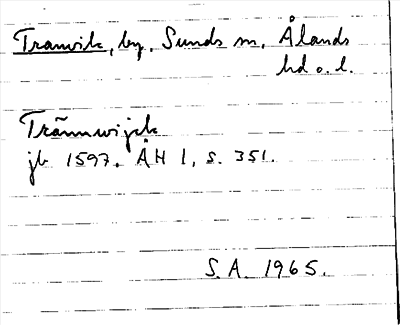 Tranvik, by, Sunds sn, Ålands
hd o. l.
Trännwijck
jb 1597. ÅH 1, s. 351.
S.A. 1965.